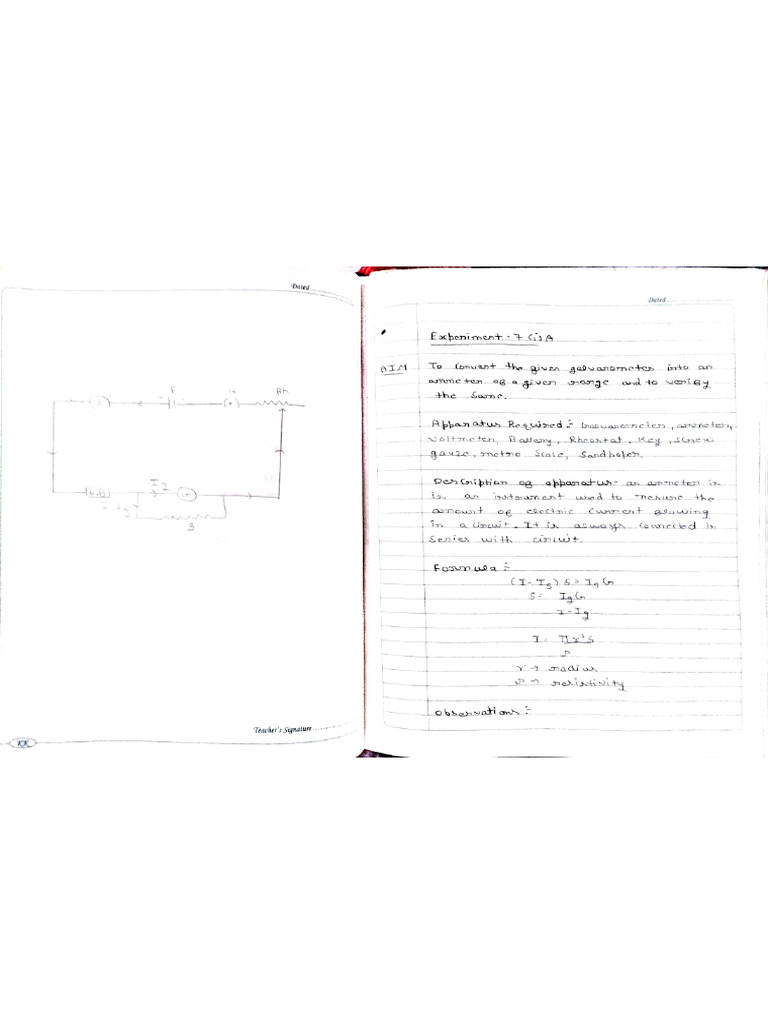 Dated
E
K
Rh
Ig
G
S
Teacher's Signature
KK
Dated
Experiment - 7 (i) A
AIM
To convert the given galvanometer into an
ammeter of a given range and to verify
the same.
Apparatus Required :- Galvanometer, ammeter,
voltmeter, Battery, Rheostat, Key, screw
gauze, metre scale, Sandpaper.
Description of apparatus - an ammeter is
is an instrument used to mesure the
amount of electric current flowing
in a circuit. It is always connected in
series with circuit.
Formula :-
(I - Ig) S = Ig G
S = Ig G
I - Ig
l = πr²S
ρ
r → radius
ρ → resistivity
Observations :-